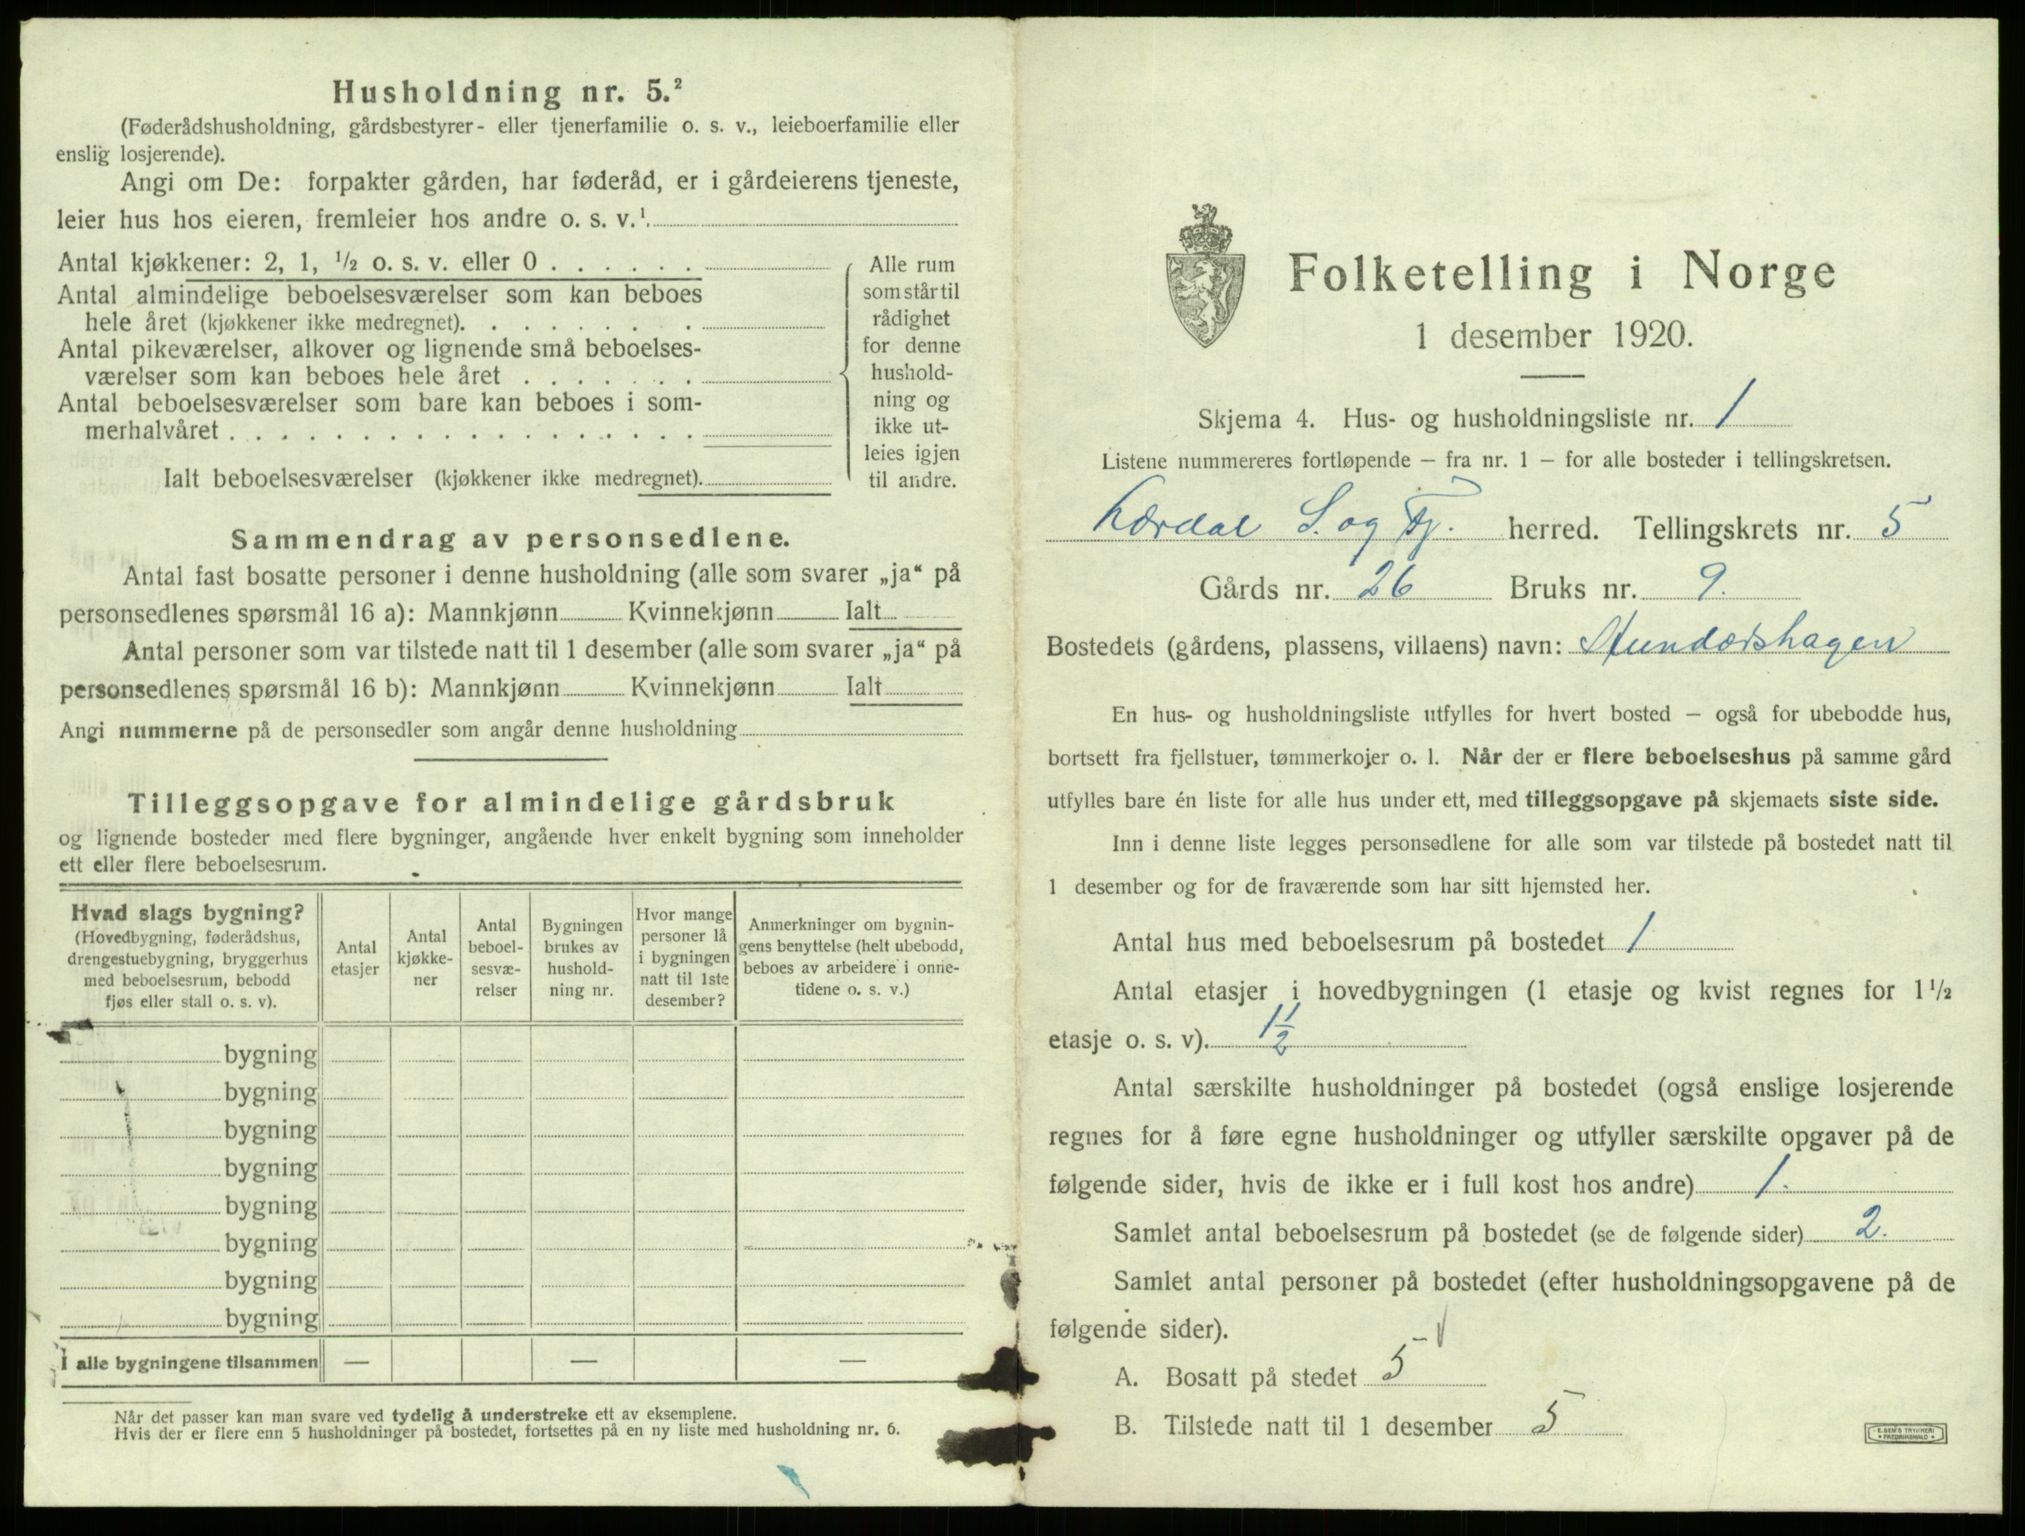 Husholdning nr. 5.²
(Føderådshusholdning, gårdsbestyrer- eller tjenerfamilie o. s. v., leieboerfamilie eller
enslig losjerende).
Angi om De: forpakter gården, har føderåd, er i gårdeierens tjeneste,
leier hus hos eieren, fremleier hos andre o. s. v.¹
Antal kjøkkener: 2, 1, ½ o. s. v. eller 0 . . . . . .
Antal almindelige beboelsesværelser som kan beboes
hele året (kjøkkener ikke medregnet). . . . . . . .
Antal pikeværelser, alkover og lignende små beboelses-
værelser som kan beboes hele året . . . . . . .
Antal beboelsesværelser som bare kan beboes i som-
merhalvåret . . . . . . . . . . . . . . . . . .
Ialt beboelsesværelser (kjøkkener ikke medregnet).
Alle rum
som står til
rådighet
for denne
hushold-
ning og
ikke ut-
leies igjen
til andre.
Sammendrag av personsedlene.
Antal fast bosatte personer i denne husholdning (alle som svarer „ja“ på
personsedlenes spørsmål 16 a): Mannkjønn Kvinnekjønn Ialt
Antal personer som var tilstede natt til 1 desember (alle som svarer „ja“ på
personsedlenes spørsmål 16 b): Mannkjønn Kvinnekjønn Ialt
Angi nummerne på de personsedler som angår denne husholdning
Tilleggsopgave for almindelige gårdsbruk
og lignende bosteder med flere bygninger, angående hver enkelt bygning som inneholder
ett eller flere beboelsesrum.
Hvad slags bygning?
(Hovedbygning, føderådshus,
drengestuebygning, bryggerhus
med beboelsesrum, bebodd
fjøs eller stall o. s. v).
Antal
etasjer
Antal
kjøkke-
ner
Antal
beboel-
sesvæ-
relser
Bygningen
brukes av
hushold-
ning nr.
Hvor mange
personer lå
i bygningen
natt til 1ste
desember?
Anmerkninger om bygnin-
gens benyttelse (helt ubebodd,
beboes av arbeidere i onne-
tidene o. s. v.)
bygning
bygning
bygning
bygning
bygning
bygning
bygning
bygning
I alle bygningene tilsammen — — —
Når det passer kan man svare ved tydelig å understreke ett av eksemplene.
Hvis der er flere enn 5 husholdninger på bostedet, fortsettes på en ny liste med husholdning nr. 6.
Folketelling i Norge
1 desember 1920.
Skjema 4. Hus- og husholdningsliste nr. 1
Listene nummereres fortløpende — fra nr. 1 — for alle bosteder i tellingskretsen.
Lærdal S. og Fj. herred. Tellingskrets nr. 5
Gårds nr. 26 Bruks nr. 9.
Bostedets (gårdens, plassens, villaens) navn:
En hus- og husholdningsliste utfylles for hvert bosted — også for ubebodde hus,
bortsett fra fjellstuer, tømmerkojer o. l. Når der er flere beboelseshus på samme gård
utfylles bare én liste for alle hus under ett, med tilleggsopgave på skjemaets siste side.
Inn i denne liste legges personsedlene for alle som var tilstede på bostedet natt til
1 desember og for de fraværende som har sitt hjemsted her.
Antal hus med beboelsesrum på bostedet 1
Antal etasjer i hovedbygningen (1 etasje og kvist regnes for 1½
etasje o. s. v). 1½
Antal særskilte husholdninger på bostedet (også enslige losjerende
regnes for å føre egne husholdninger og utfyller særskilte opgaver på de
følgende sider, hvis de ikke er i full kost hos andre) 1.
Samlet antal beboelsesrum på bostedet (se de følgende sider) 2.
Samlet antal personer på bostedet (efter husholdningsopgavene på de
følgende sider).
A. Bosatt på stedet 5
B. Tilstede natt til 1 desember 5
E. SEM'S TRYKKERI
FREDRIKSHALD